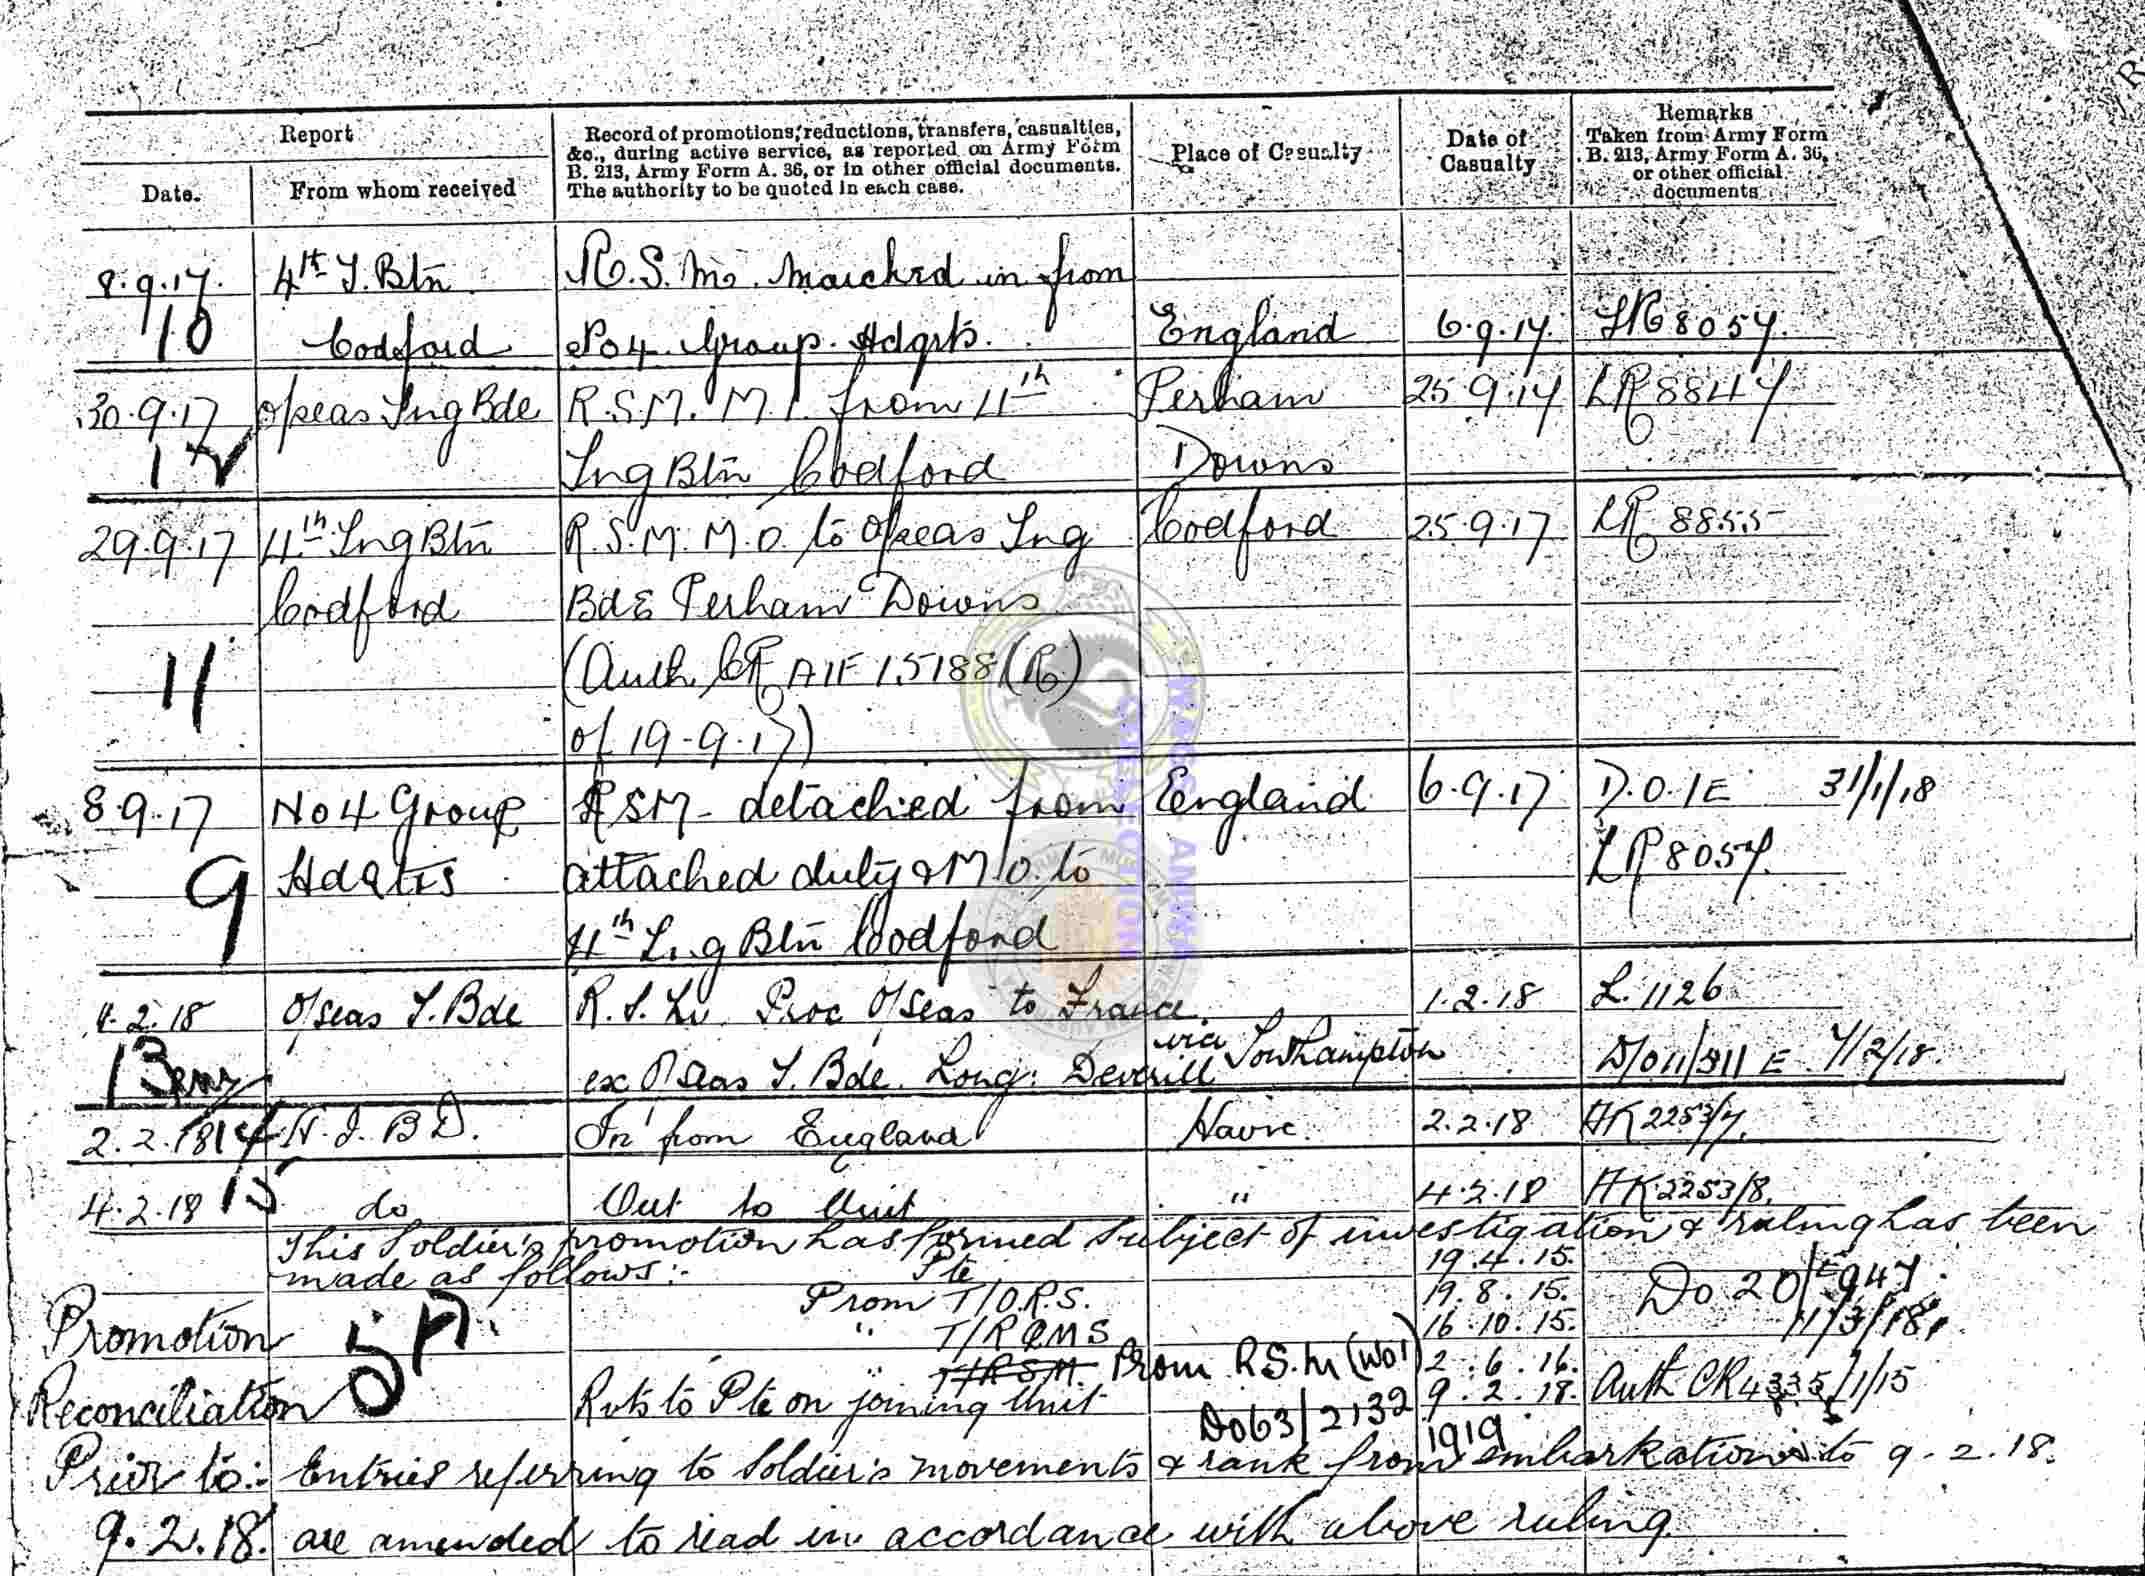 Report
Date.
From whom received
Record of promotions, reductions, transfers, casualties,
&c., during active service, as reported on Army Form
B. 213, Army Form A. 36, or in other official documents.
The authority to be quoted in each case.
Place of Casualty
Date of
Casualty
Remarks
Taken from Army Form
B. 213, Army Form A. 36,
or other official
documents
8.9.17. 4th T. Btn R.S.M. Marched in from
10 Codford No 4. Group. Hdqrs. England 6.9.17. LR 8057.
30.9.17 O/seas Tng Bde R.S.M. M.I. from 4th Perham 25.9.17 LR 8847
12 Tng Btn Codford Downs
29.9.17 4th Tng Btn R.S.M. M.O. to O/seas Tng Codford 25.9.17 LR 8855
Codford Bde Perham Downs
11 (Auth. CR AIF 15188 (R)
of 19-9-17)
8.9.17 No 4 Group RSM - detached from England 6.9.17 D.O. 1E 31/1/18
9 Hdqtrs attached duty & M.O. to LR 8057.
4th Tng Btn Codford
WAGS ANIWA
COLLECTION
4.2.18 O/seas T. Bde R.S.M. Proc O/Seas to France 1.2.18 L. 1126
13 ex O/seas T. Bde. Long: Deverill via Southampton D/O 11/311 E 7/2/18.
2.2.18 14 A.I.B.D. In from England Havre. 2.2.18 AK 2253/7.
4.2.18 15 do Out to Unit " 4.2.18 AK 2253/8.
This Soldier's promotion has formed subject of investigation & ruling has been
made as follows:- Pte 19.4.15.
Prom T/O.R.S. 19.8.15. Do 20/E947
Promotion " T/RQMS 16.10.15. 11/3/18.
" T/RSM. Prom R.S.M (WO1) 2.6.16.
Reconciliation Rvts to Pte on joining Unit 9.2.18. Auth CR 4335/1/15
Do 63/2132
1919
Prior to:- Entries referring to Soldier's movements & rank from embarkation to 9.2.18.
9.2.18. are amended to read in accordance with above ruling